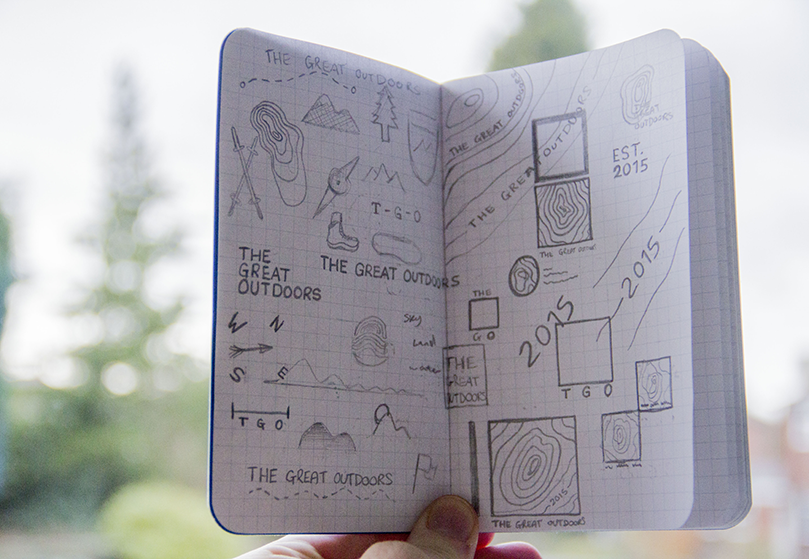 THE GREAT OUTDOORS
T-G-O
THE
GREAT
OUTDOORS
THE GREAT OUTDOORS
W N
S E
sky
land
water
T G O
THE GREAT OUTDOORS
THE GREAT OUTDOORS
THE GREAT OUTDOORS
GREAT
OUTDOORS
EST.
2015
THE GREAT OUTDOORS
THE
G O
2015
2015
T G O
THE
GREAT
OUTDOORS
2015
THE GREAT OUTDOORS